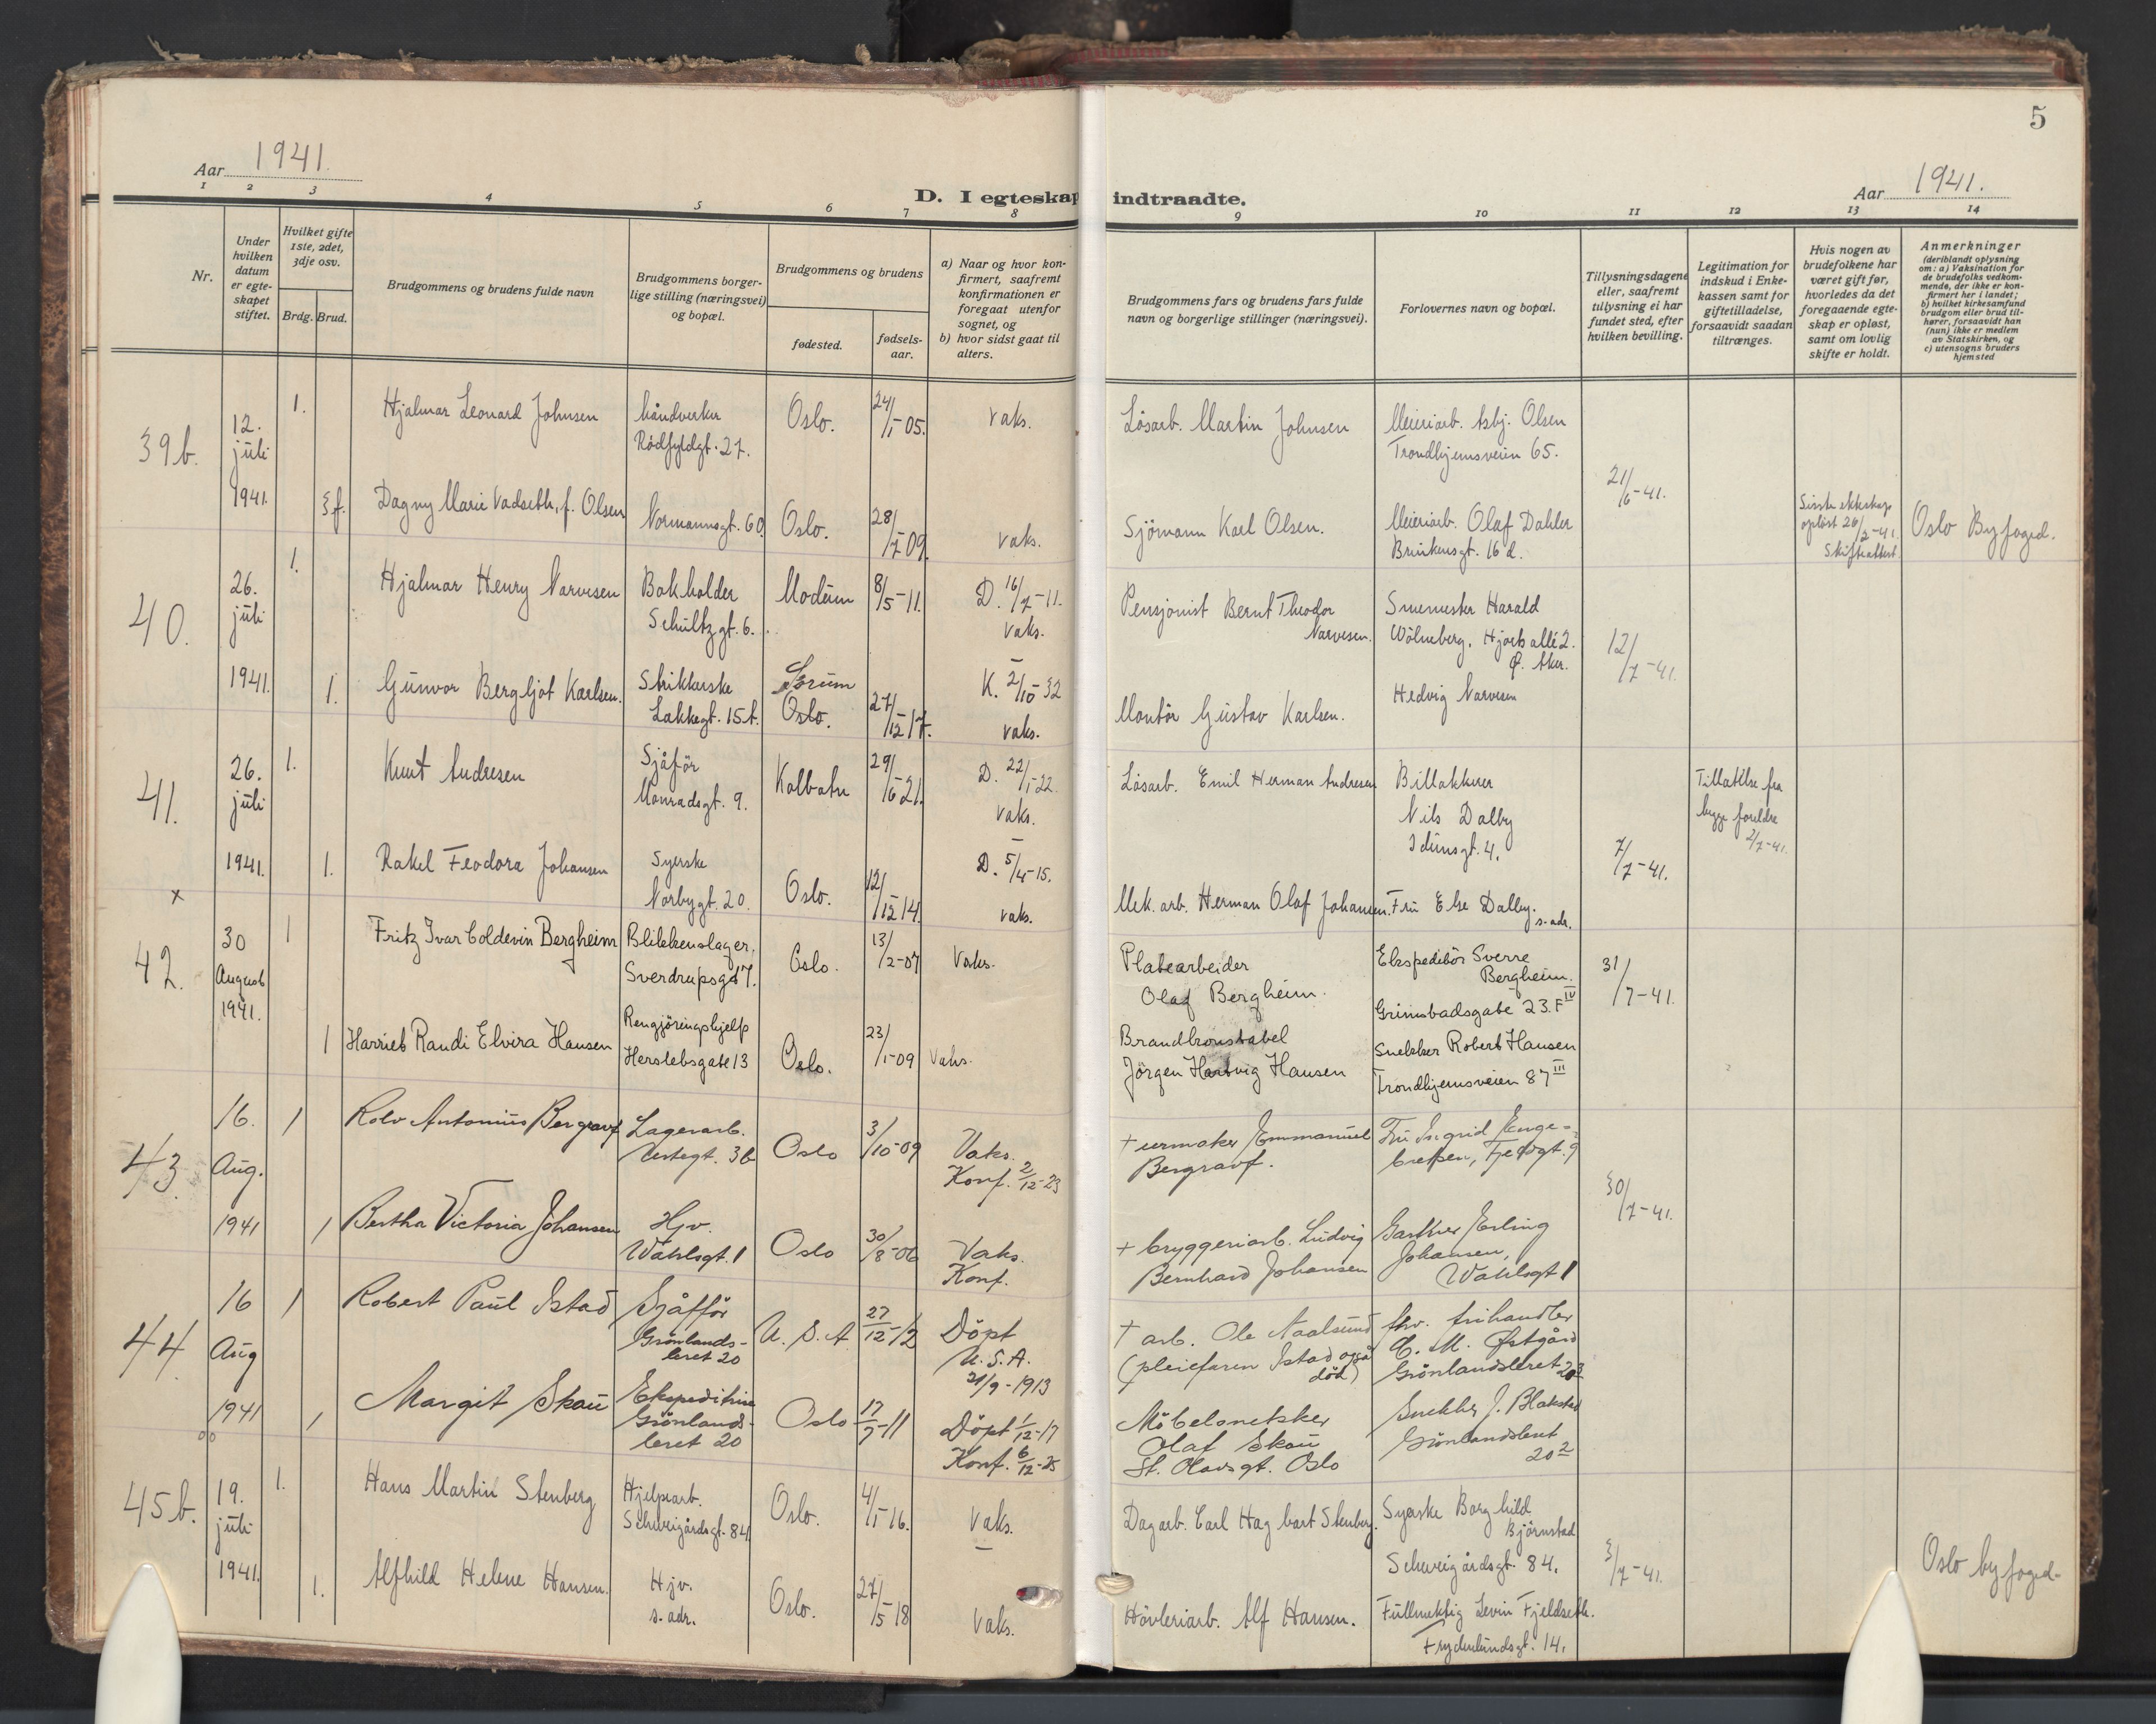 5
Aar 1941.
Aar 1941.
D. I egteskap indtraadte.
1 2 3 4 5 6 7 8 9 10 11 12 13 14
Nr.
Under hvilken datum er egte-skapet stiftet.
Hvilket gifte 1ste, 2det, 3dje osv.
Brdg. Brud.
Brudgommens og brudens fulde navn
Brudgommens borger-lige stilling (næringsvei) og bopæl.
Brudgommens og brudens
fødested.
fødsels-aar.
a) Naar og hvor kon-firmert, saafremt konfirmationen er foregaat utenfor sognet, og
b) hvor sidst gaat til alters.
Brudgommens fars og brudens fars fulde navn og borgerlige stillinger (næringsvei).
Forlovernes navn og bopæl.
Tillysningsdagene eller, saafremt tillysning ei har fundet sted, efter hvilken bevilling.
Legitimation for indskud i Enke-kassen samt for giftetilladelse, forsaavidt saadan tiltrænges.
Hvis nogen av brudefolkene har været gift før, hvorledes da det foregaaende egte-skap er opløst, samt om lovlig skifte er holdt.
Anmerkninger (deriblandt oplysning om: a) Vaksination for de brudefolks vedkom-mende, der ikke er kon-firmert her i landet; b) hvilket kirkesamfund brudgom eller brud til-hører, forsaavidt han (hun) ikke er medlem av Statskirken, og c) utensogns bruders hjemsted
39b. 12. juli 1941.
1. Hjalmar Leonard Johnsen
håndverker
Rødfyldgt. 27.
Oslo. 24/1-05. vaks.
Løsarb. Martin Johnsen
Meieriarb. Asbj. Olsen
Trondhjemsveien 65.
21/6-41.
3f. Dagny Marie Vadseth, f. Olsen
Normannsgt. 60.
Oslo. 28/7-09. vaks.
Sjömann Karl Olsen.
Meieriarb. Olaf Dahler
Brinkensgt. 16d.
Siste ekteskap
opløst 26/2-41.
Skifteattest
Oslo Byfoged.
40. 26. juli 1941.
1. Hjalmar Henry Narvesen
Bokholder
Schultzgt. 6.
Modum 8/5-11.
D. 16/7-11.
vaks.
Pensjonist Bernt Theodor
Narvesen.
Smemester Harald
Wölneberg, Hjorts allé 2.
Ø. Aker.
12/7-41.
1. Gunvor Bergljot Karlsen.
Strikkerske
Lakkegt. 15b.
Sörum
Oslo. 27/12-17.
K. 2/10-32
vaks.
Montör Gustav Karlsen.
Hedvig Narvesen
41. 26. juli 1941.
1. Knut Andresen
Sjåför
Monradsgt. 9.
Kolbotn 29/6-21.
D. 22/1-22.
vaks.
Løsarb. Emil Herman Andresen
Billakkerer
Nils Dalby
Idunsgt. 4.
7/7-41.
Tillatelse fra
begge foreldre
2/7-41.
1. Rakel Feodora Johansen
Syerske
Norbygt. 20.
Oslo. 12/12-14.
D. 5/4-15.
vaks.
Mek. arb. Herman Olaf Johansen.
Fru Else Dalby.
s. adr.
x
42. 30 August 1941.
1 Fritz Ivar Coldevin Bergheim
Blikkenslager,
Sverdrupsgt 7.
Oslo. 13/2-07 Vaks.
Platearbeider
Olaf Bergheim.
Ekspeditör Sverre
Bergheim.
Grimstadsgate 23.F IV
31/7-41.
1 Harriet Randi Elvira Hansen
Rengjöringshjelp
Herslebsgate 13
Oslo. 23/1-09 Vaks.
Brandkonstabel
Jörgen Hartvig Hansen
Snekker Robert Hansen
Trondhjemsveien 87 III
43. 16. Aug. 1941
1 Rolv Antonius Bergravf
Lagerarb.
Urtegt. 36
Oslo 3/10-09
Vaks.
Konf. 2/12-23
+ urmaker Emmanuel
Bergravf.
Fru Ingrid Enge-
bretsen,
30/7-41.
1 Bertha Victoria Johansen
Hjv.
Wahlsgt. 1
Oslo 30/8-06
Vaks.
Konf.
+ bryggeriarb. Ludvig
Bernhard Johansen
Gartner Erling
Johansen,
Wahlsgt 1
44. 16 Aug 1941
1 Robert Paul Istad
Sjåffør
Grönlands-
leret 20
U.S.A. 27/12-12
Döpt
U.S.A.
21/9-1913
+ arb. Ole Naalsund
(pleiefaren Istad også
død)
fhv. trihandler
C. M. Østgård
Grönlandsleret 20 3
1 Margit Skau
Ekspeditrise
Grönlands-
leret 20
Oslo 17/7-11
Döpt 1/12-17
Konf. 6/12-25
Möbelsnekker
Olaf Skau
St. Olavsgt. Oslo
Snekker J. Blakstad
Grönlandsleret
20 2
oo
45b. 19. juli 1941.
1. Hans Martin Stenberg
Hjelpearb.
Schweigårdsgt. 84
Oslo. 4/1-16. Vaks.
Dagarb. Carl Hagbart Stenberg.
Syerske Borghild
Björnstad
Schweigårdsgt. 84.
3/7-41.
Oslo byfoged-
1. Alfhild Helene Hansen.
Hjv.
s. adr.
Oslo. 27/5-18 Vaks.
Hövleriarb. Alf Hansen.
Fullmektig Levin Fjeldseth.
Frydenlundsgt. 14.